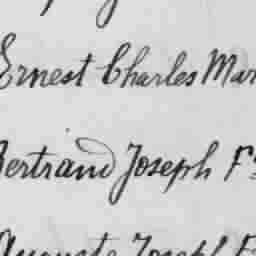 Ernest Charles Mar
Bertrand Joseph F
Auguste Joseph F